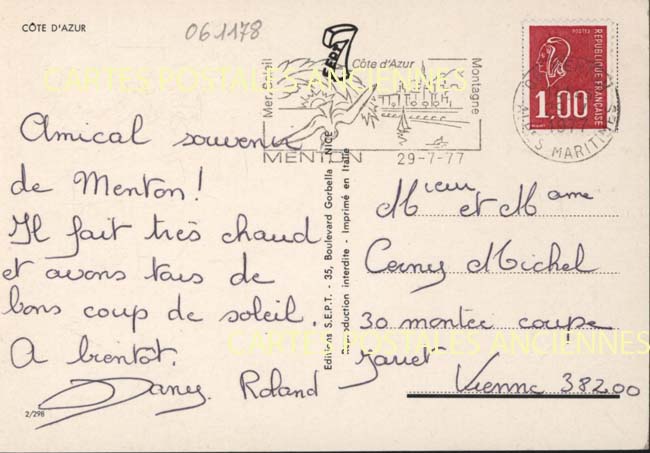 CÔTE D'AZUR
061178
SEPT
Mer Soleil
Côte d'Azur
Montagne
MENTON 29-7-77
POSTES
REPUBLIQUE FRANÇAISE
1,00
1977
ALPES MARITIMES
CARTES POSTALES ANCIENNES
Amical souvenir
de Menton!
Il fait très chaud
et avons tous de
bons coup de soleil.
A bientot.
Dany Roland
2/298
Editions S.E.P.T. - 35, Boulevard Gorbella - NICE
Reproduction interdite - Imprimé en Italie
Mieur et Mame
Cerny Michel
30 montée coupe
Jarret
Vienne 38200
CARTES POSTALES ANCIENNES